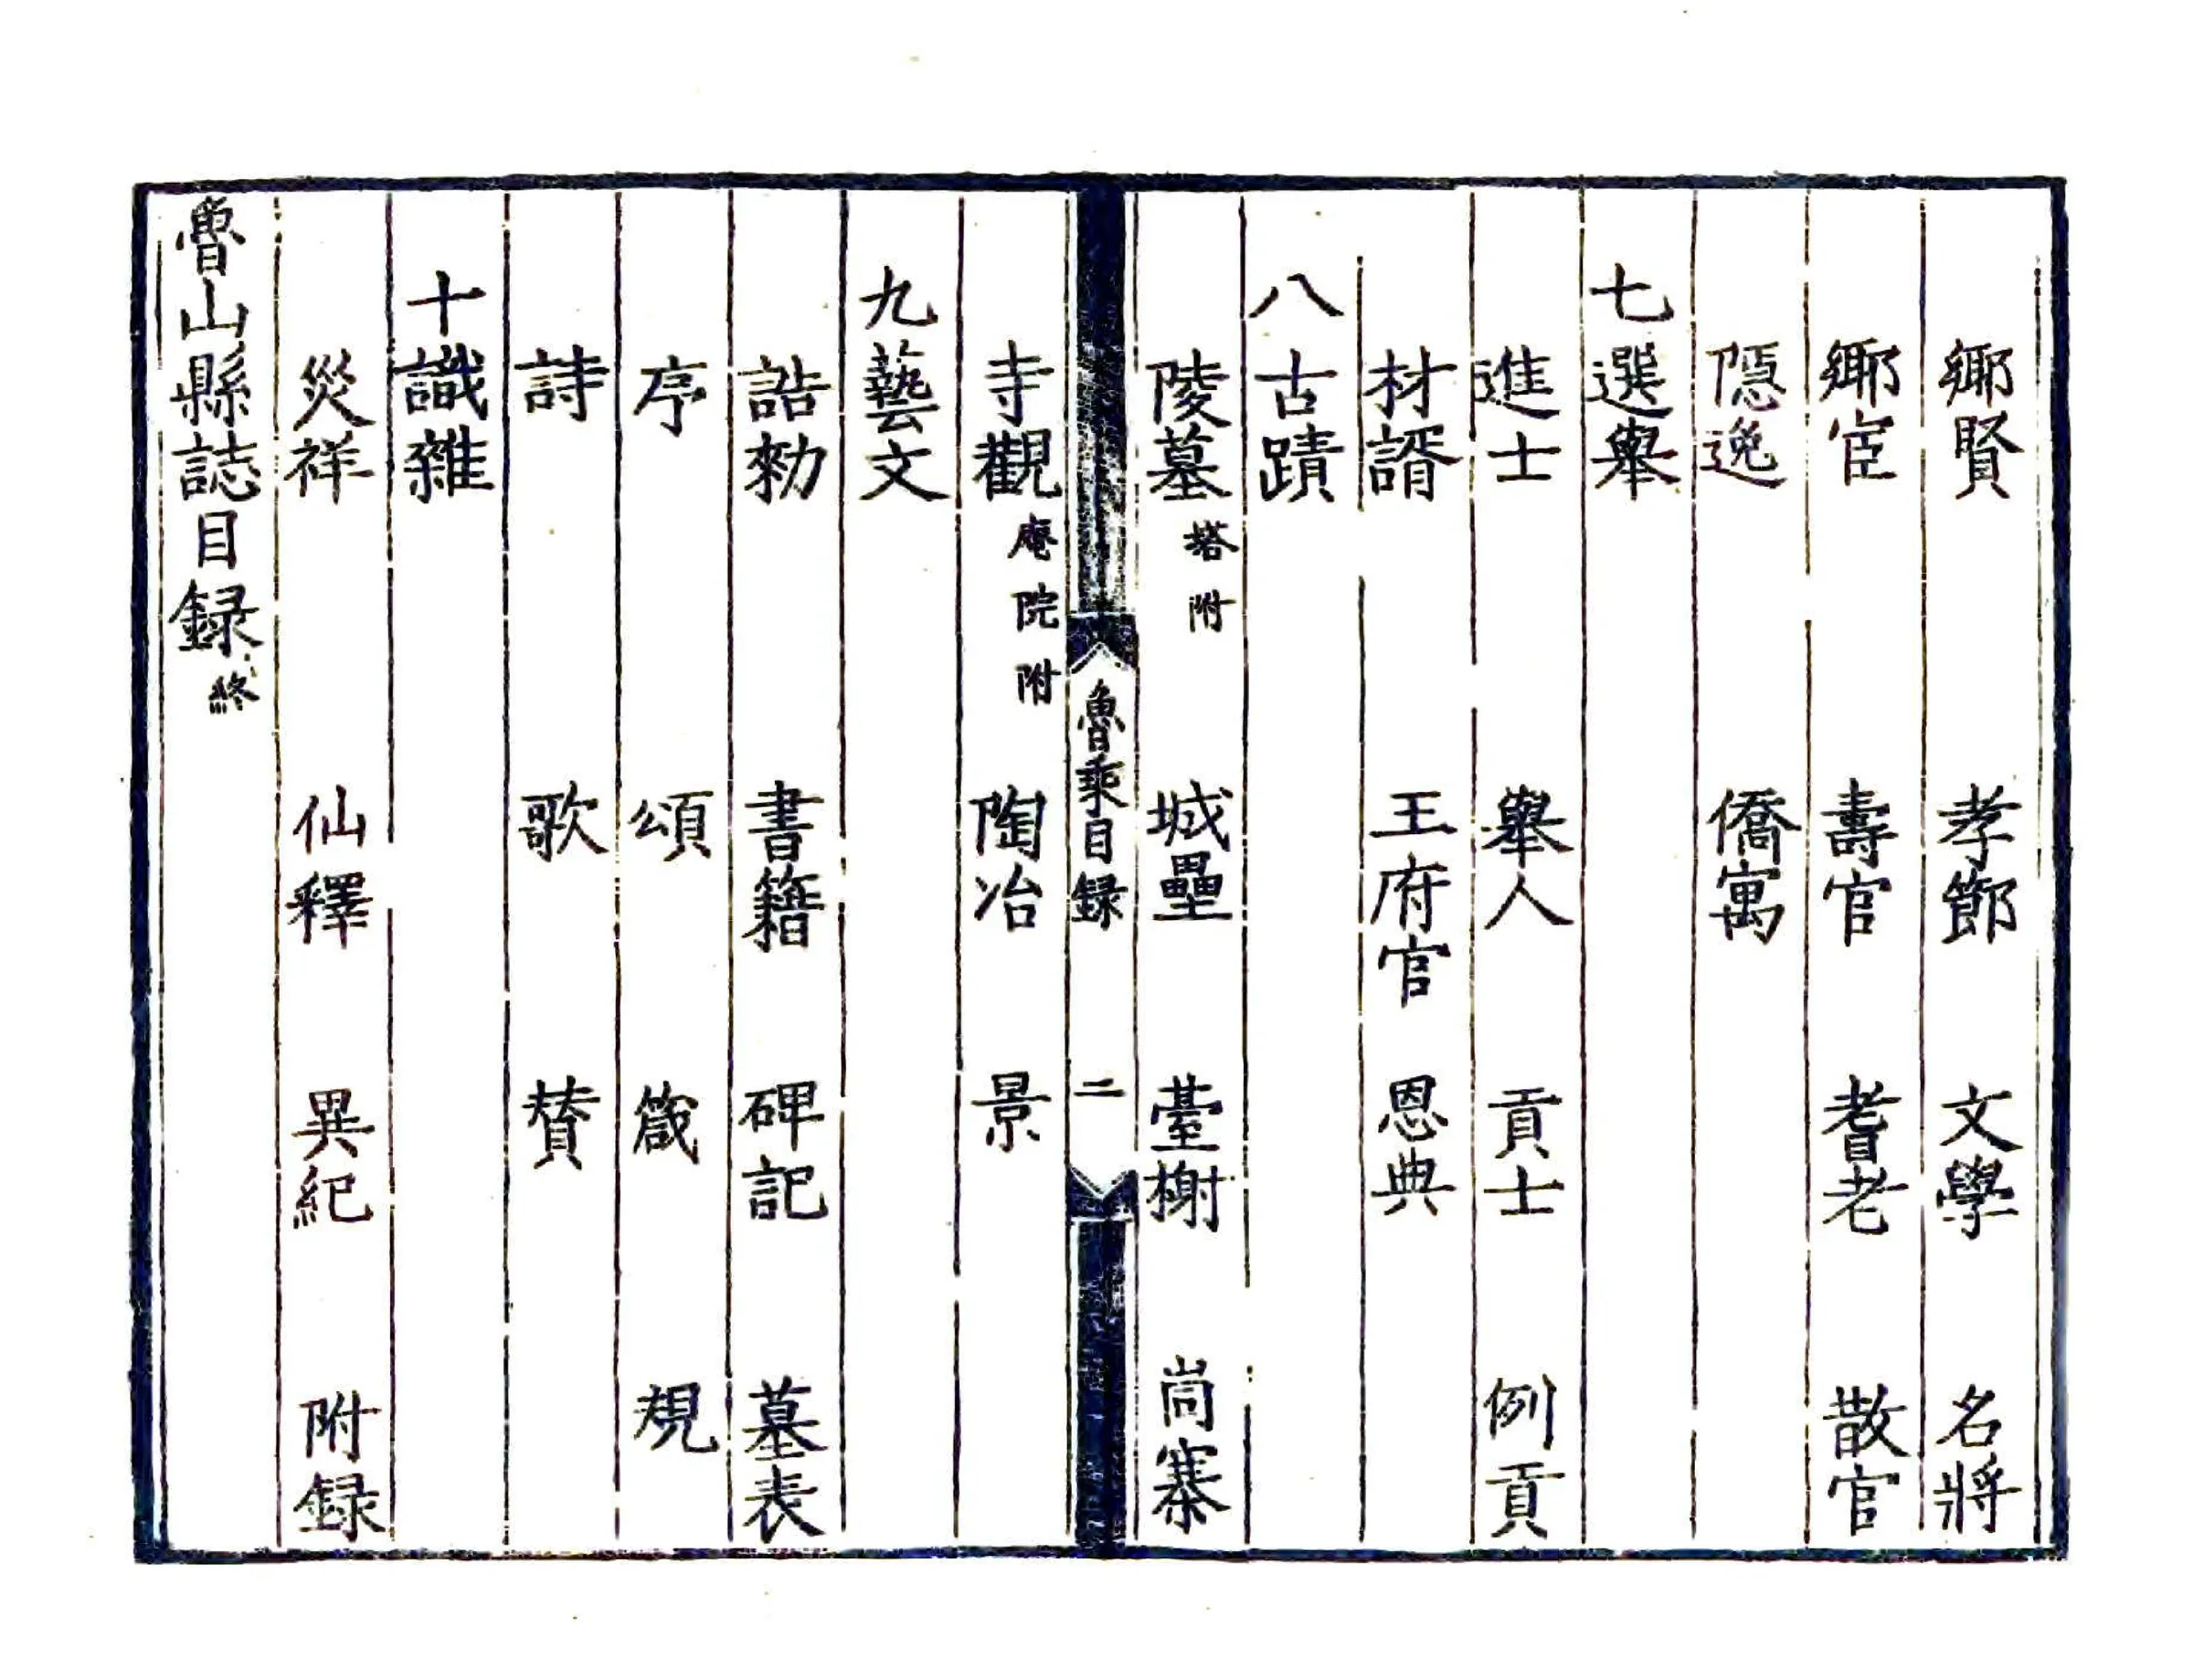 鄉賢 孝節 文學 名將
鄉宦 壽官 耆老 散官
隱逸 僑寓
七選舉
進士 舉人 貢士 例貢
材諝 王府官 恩典
八古蹟
陵墓塔附 城壘 臺榭 崗寨
魯乘目録 二
寺觀庵院附 陶冶 景
九藝文
誥勑 書籍 碑記 墓表
序 頌 箴 規
詩 歌 賛
十識雜
災祥 仙釋 異紀 附録
魯山縣誌目録終